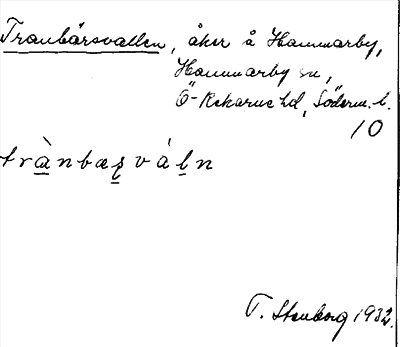 Tranbärsvallen, åker å Hammarby,
Hammarby sn,
Ö-Rekarne hd, Söderm. l.
10
trànbæʂválṇ
T. Stenborg 1932.